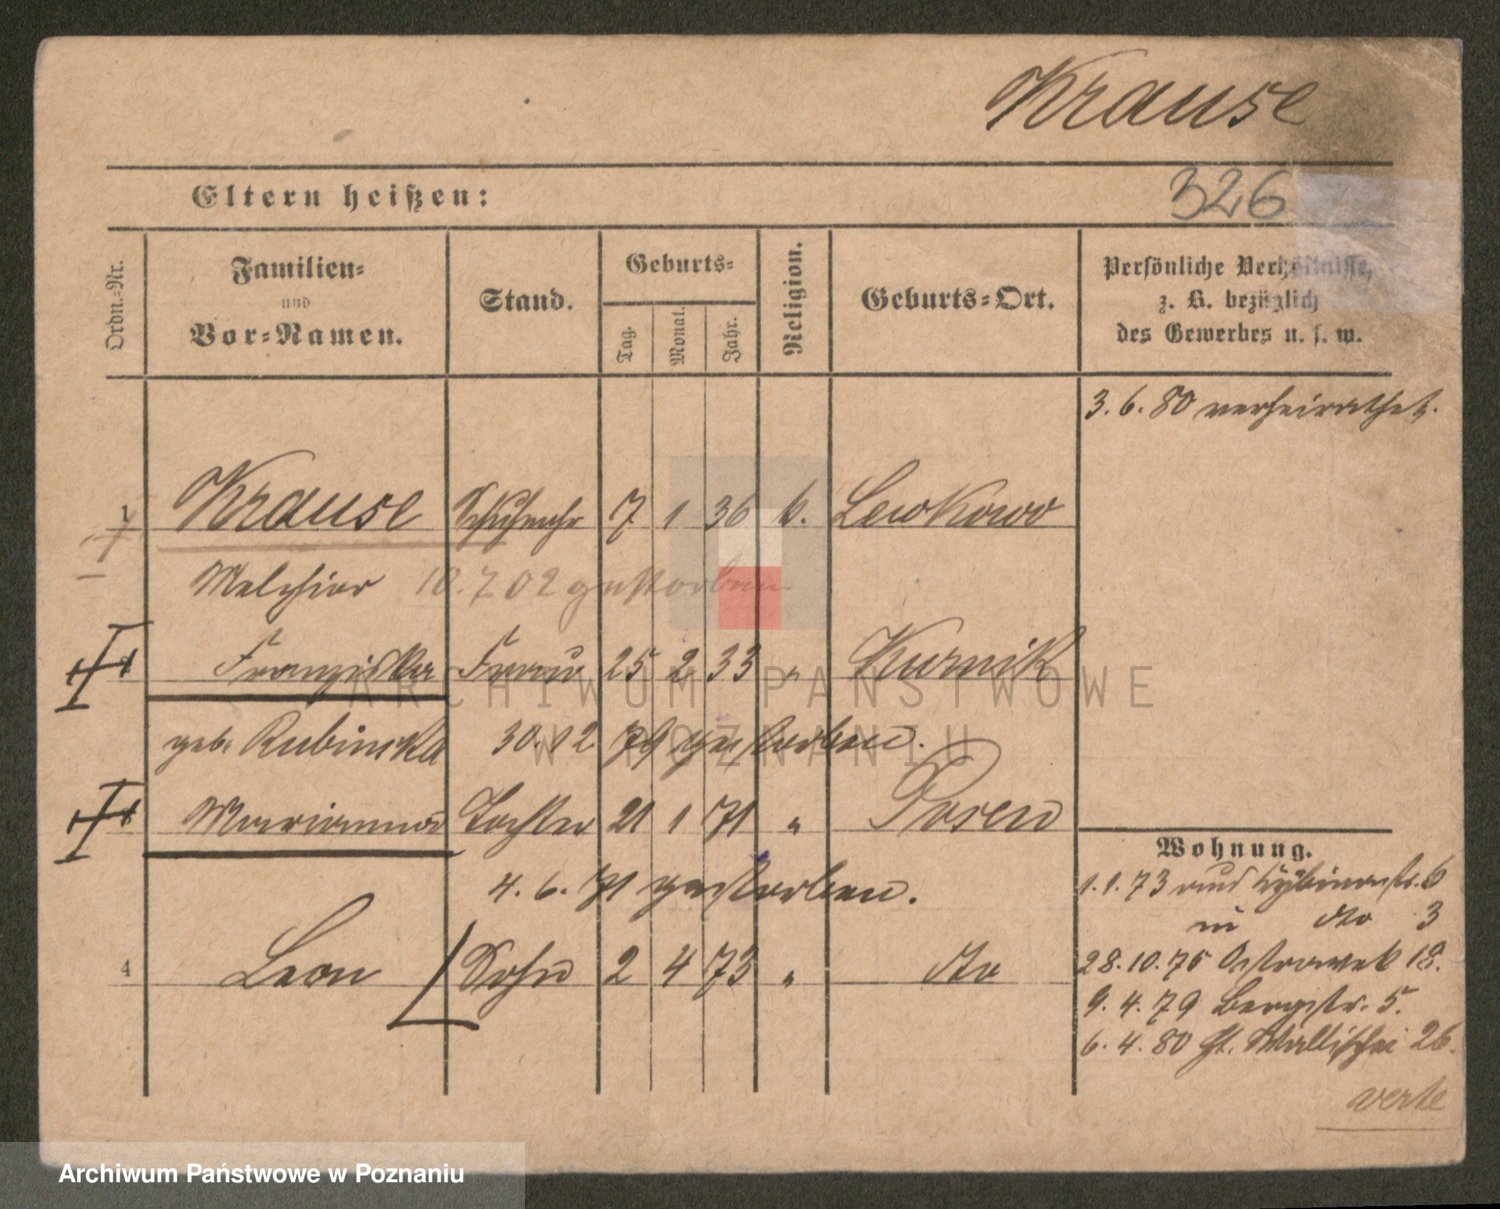 Krause
Eltern heißen:
326
Ordn.-Nr.
Familien-
und
Vor-Namen.
Stand.
Geburts-
Tag.
Monat.
Jahr.
Religion.
Geburts-Ort.
Persönliche Verhältnisse,
z. B. bezüglich
des Gewerbes u. s. w.
3. 6. 80 verheirathet.
1 Krause Schuhmchr 7 1 36 k. Lewkowo
Melchior 10. 7 02 gestorben
Franziska Frau 25 2 33 " Kurnik
geb. Rubinska 30. 12 79 gestorben.
Marianna Tochter 21 1 71 " Posen
4. 6. 71 gestorben.
4 Leon Sohn 2 4 73 " dto
Wohnung.
1. 1. 73 6
dto 3
28. 10. 75 Ostrowek 18.
9. 4. 79 Bergstr. 5.
6. 4. 80 Wallischei 26.
verte
ARCHIWUM PAŃSTWOWE
W POZNANIU
Archiwum Państwowe w Poznaniu